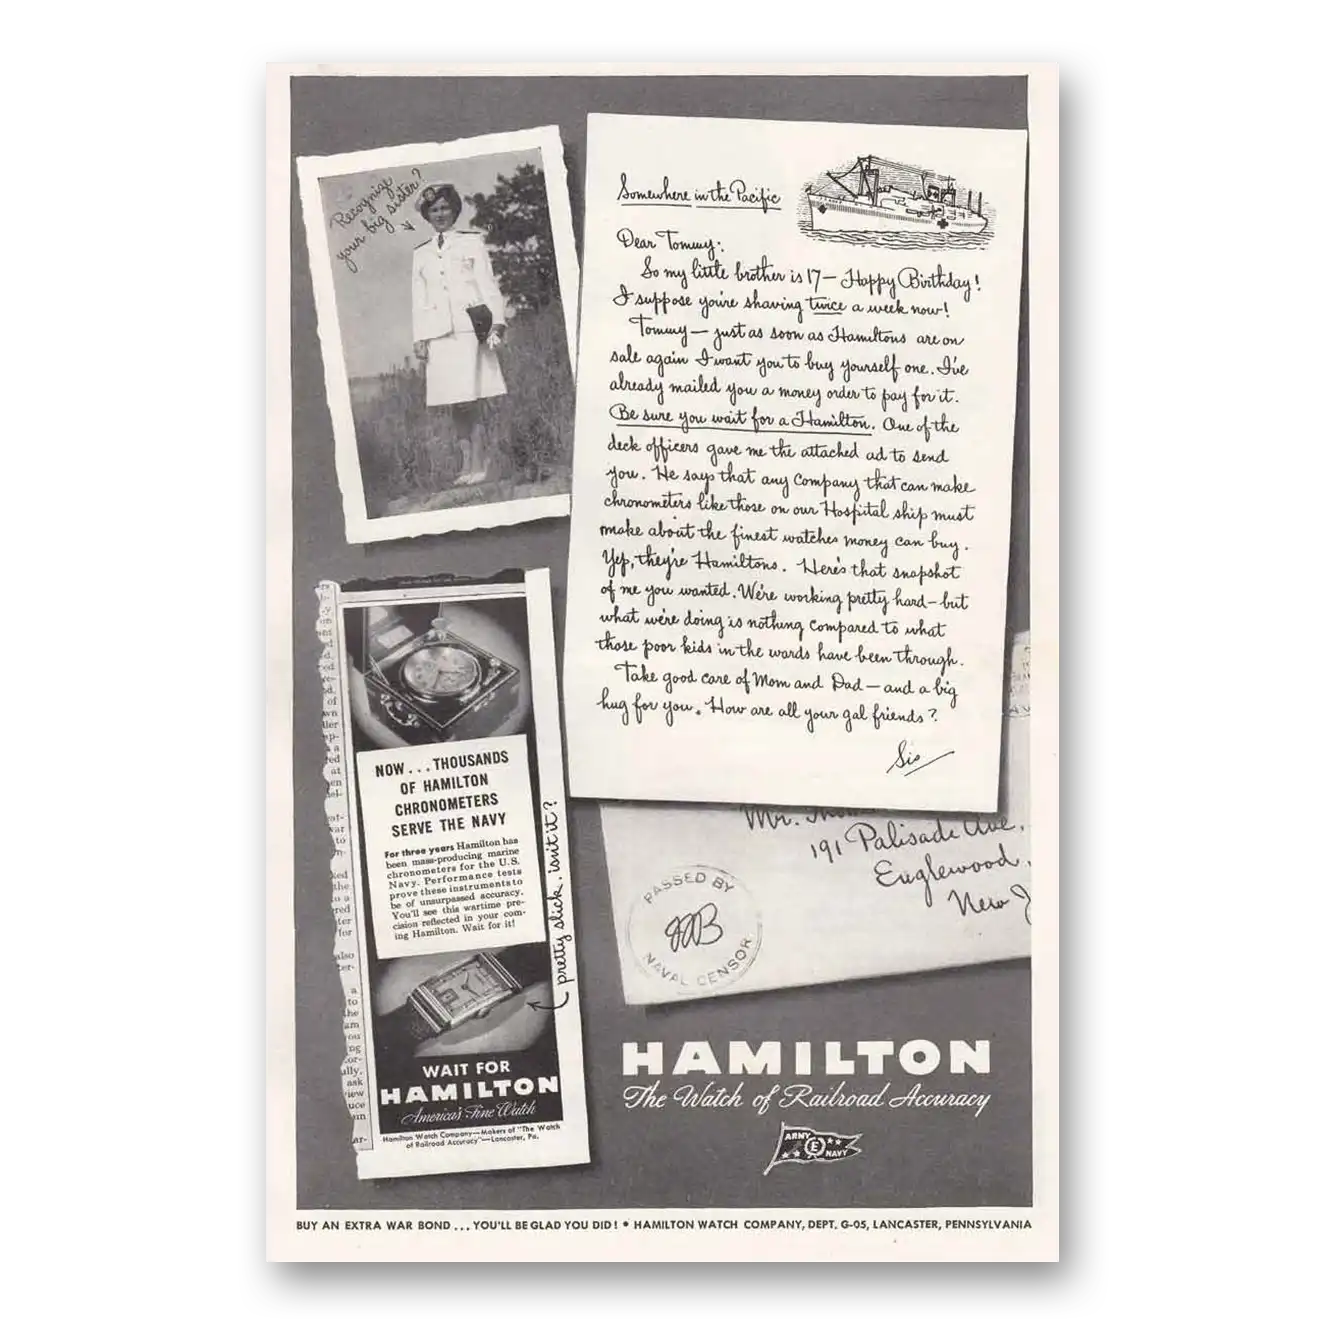 Recognize
your big sister?
Somewhere in the Pacific
Dear Tommy:
So my little brother is 17— Happy Birthday!
I suppose you're shaving twice a week now!
Tommy— just as soon as Hamiltons are on
sale again I want you to buy yourself one. I've
already mailed you a money order to pay for it.
Be sure you wait for a Hamilton. One of the
deck officers gave me the attached ad to send
you. He says that any company that can make
chronometers like those on our Hospital ship must
make about the finest watches money can buy.
Yep, they're Hamiltons. Here's that snapshot
of me you wanted. We're working pretty hard—but
what we're doing is nothing compared to what
those poor kids in the wards have been through.
Take good care of Mom and Dad—and a big
hug for you. How are all your gal friends?
Sis
NOW...THOUSANDS
OF HAMILTON
CHRONOMETERS
SERVE THE NAVY
For three years Hamilton has
been mass-producing marine
chronometers for the U.S.
Navy. Performance tests
prove these instruments to
be of unsurpassed accuracy.
You'll see this wartime pre-
cision reflected in your com-
ing Hamilton. Wait for it!
pretty slick, isn't it?
WAIT FOR
HAMILTON
America's Fine Watch
Hamilton Watch Company—Makers of "The Watch
of Railroad Accuracy"—Lancaster, Pa.
Mr.
191 Palisade Ave.
Englewood,
New J
PASSED BY
NAVAL CENSOR
HAMILTON
The Watch of Railroad Accuracy
ARMY E NAVY
BUY AN EXTRA WAR BOND...YOU'LL BE GLAD YOU DID! • HAMILTON WATCH COMPANY, DEPT. G-05, LANCASTER, PENNSYLVANIA